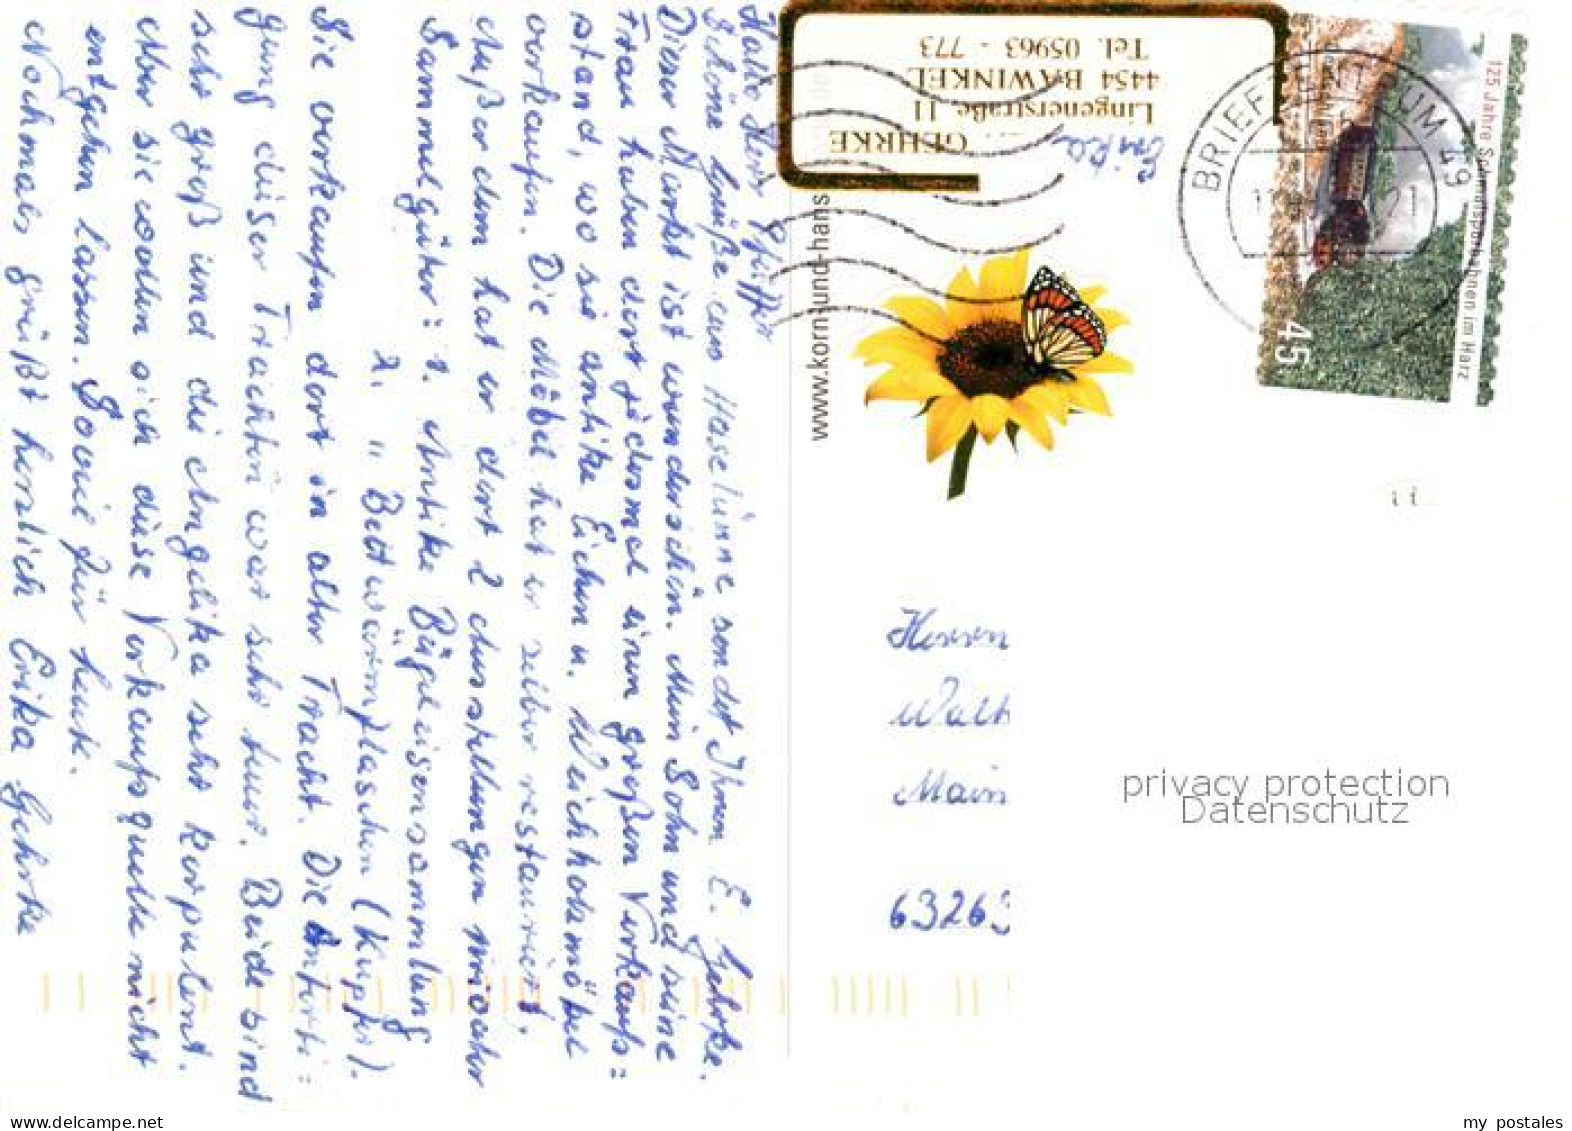 Hallo Herr Pfeiffer
Schöne Grüße aus Haselünne sendet Ihnen E. Gehrke.
Dieser Markt ist wunderschön. Mein Sohn und seine
Frau haben dort jedesmal einen großen Verkaufs=
stand, wo sie antike Eichen u. Weichholzmöbel
verkaufen. Die Möbel hat er selber restauriert.
Außerdem hat er dort 2 Ausstellungen
Sammelgüter: 1. Antike Bügeleisensammlung
2. " Bettwärmflaschen (Kupfer).
Sie verkaufen dort in alter Tracht. Die Anferti=
gung dieser Trachten war sehr teuer. Beide sind
sehr groß und die Angelika sehr korpulent.
Aber sie wollen sich diese Verkaufsquelle nicht
entgehen lassen. Soviel für heute.
Nochmals grüßt herzlich Erika Gehrke
GEHRKE
Lingenerstraße 11
4454 BAWINKEL
Tel. 05963 - 773
Erika
www.korn-und-hans
BRIEFZENTRUM 49
125 Jahre Schmalspurbahnen im Harz
Deutschland
45
Herrn
Walt
Main
63263
privacy protection
Datenschutz
my postales